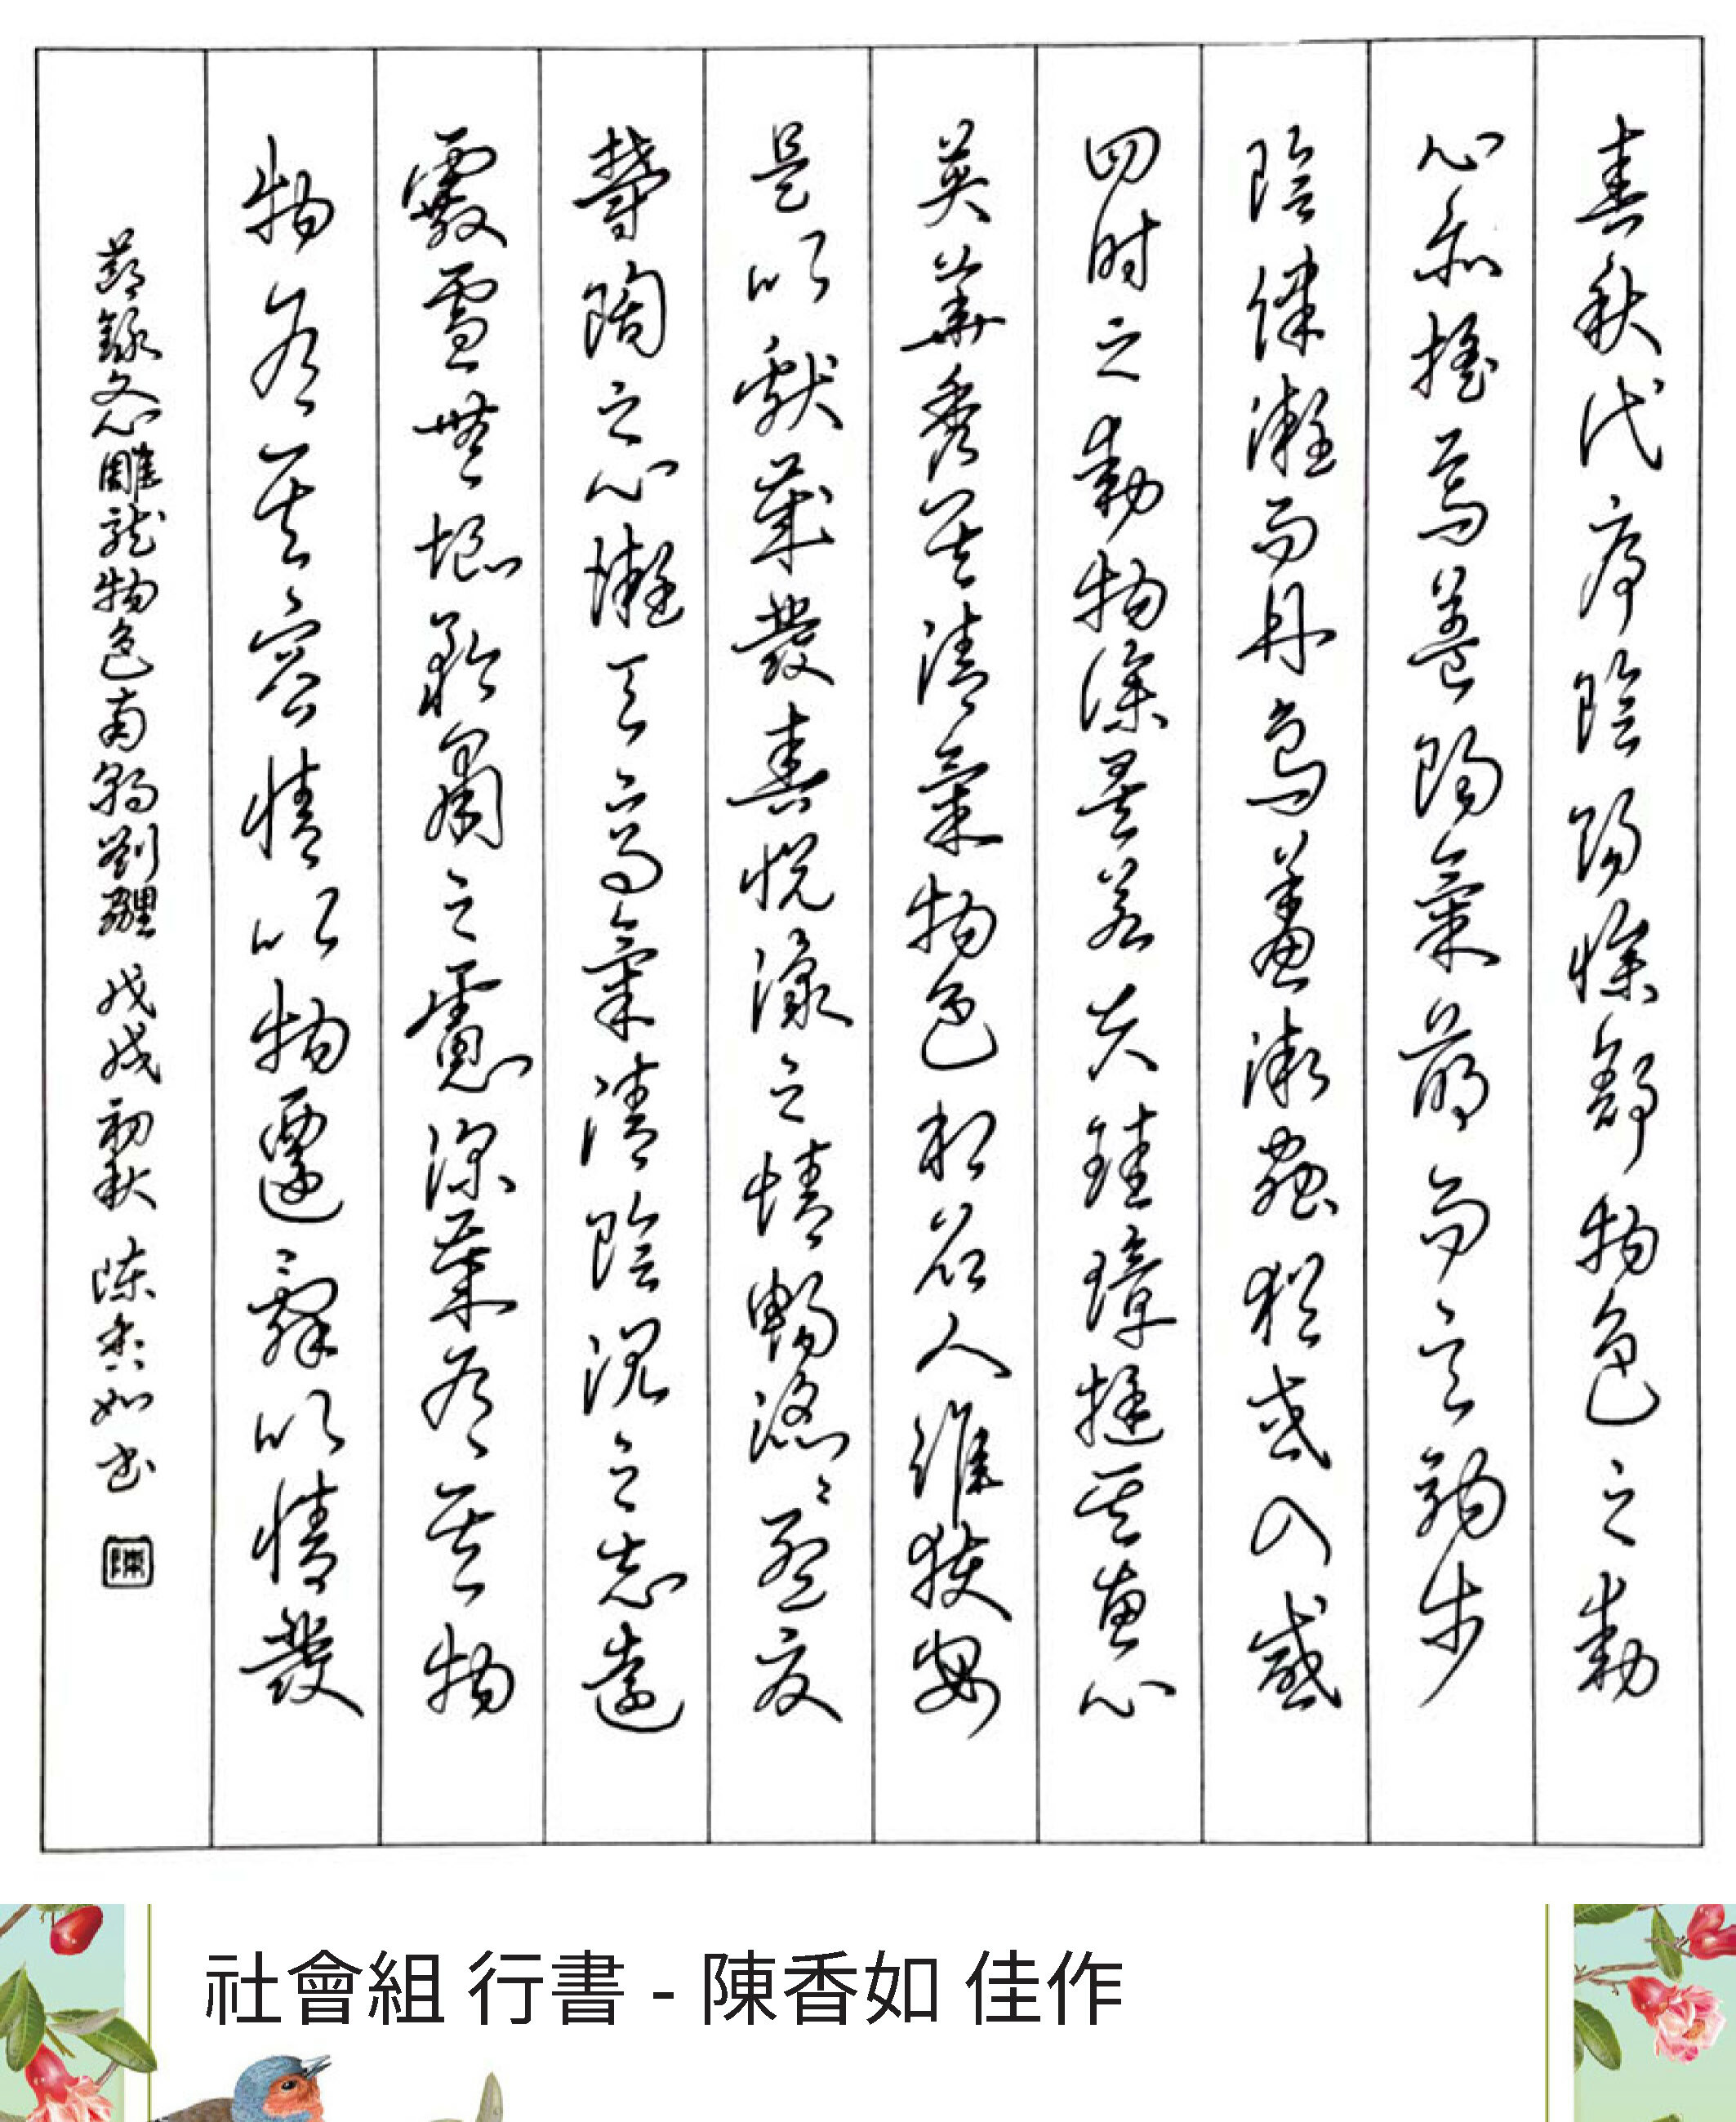 春秋代序陰陽慘舒物色之動
心亦搖焉蓋陽氣萌而玄駒步
陰律凝而丹鳥羞微蟲猶或入感
四時之動物深矣若夫珪璋挺其惠心
英華秀其清氣物色相召人誰獲安
是以獻歲發春悅豫之情暢滔〻孟夏
鬱陶之心凝天高氣清陰沉之志遠
霰雪無垠矜肅之慮深歲有其物
物有其容情以物遷辭以情發
節錄文心雕龍物色南朝劉勰 戊戌初秋 陳香如書
陳
社會組 行書 - 陳香如 佳作